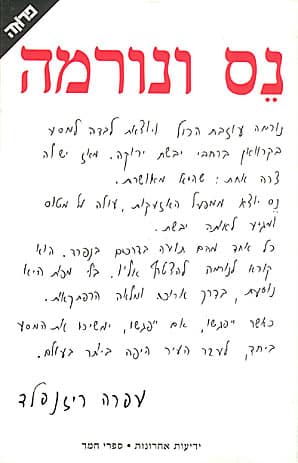 פראזה
נֵס ונורמה
נורמה עוזבת הכול ויוצאת לבדה למסע
בקרוואן ברחבי יבשת ירוקה. מאז יש לה
צרה אחת: שהיא מאושרת.
נֵס יוצא ממפעל האזעקות, עולה על מטוס
ומגיע לאותה יבשת.
כל אחד מהם תועה בדרכים בנפרד. הוא
קורא לנורמה להצטרף אליו. בלי מפת היא
נוסעת, בדרך ארוכה ומלאה הרפתקאות.
כאשר ייפגשו, אם ייפגשו, ימשיכו את המסע
ביחד, לעבר העיר היפה ביותר בעולם.
עפרה ריזנפלד
ידיעות אחרונות • ספרי חמד